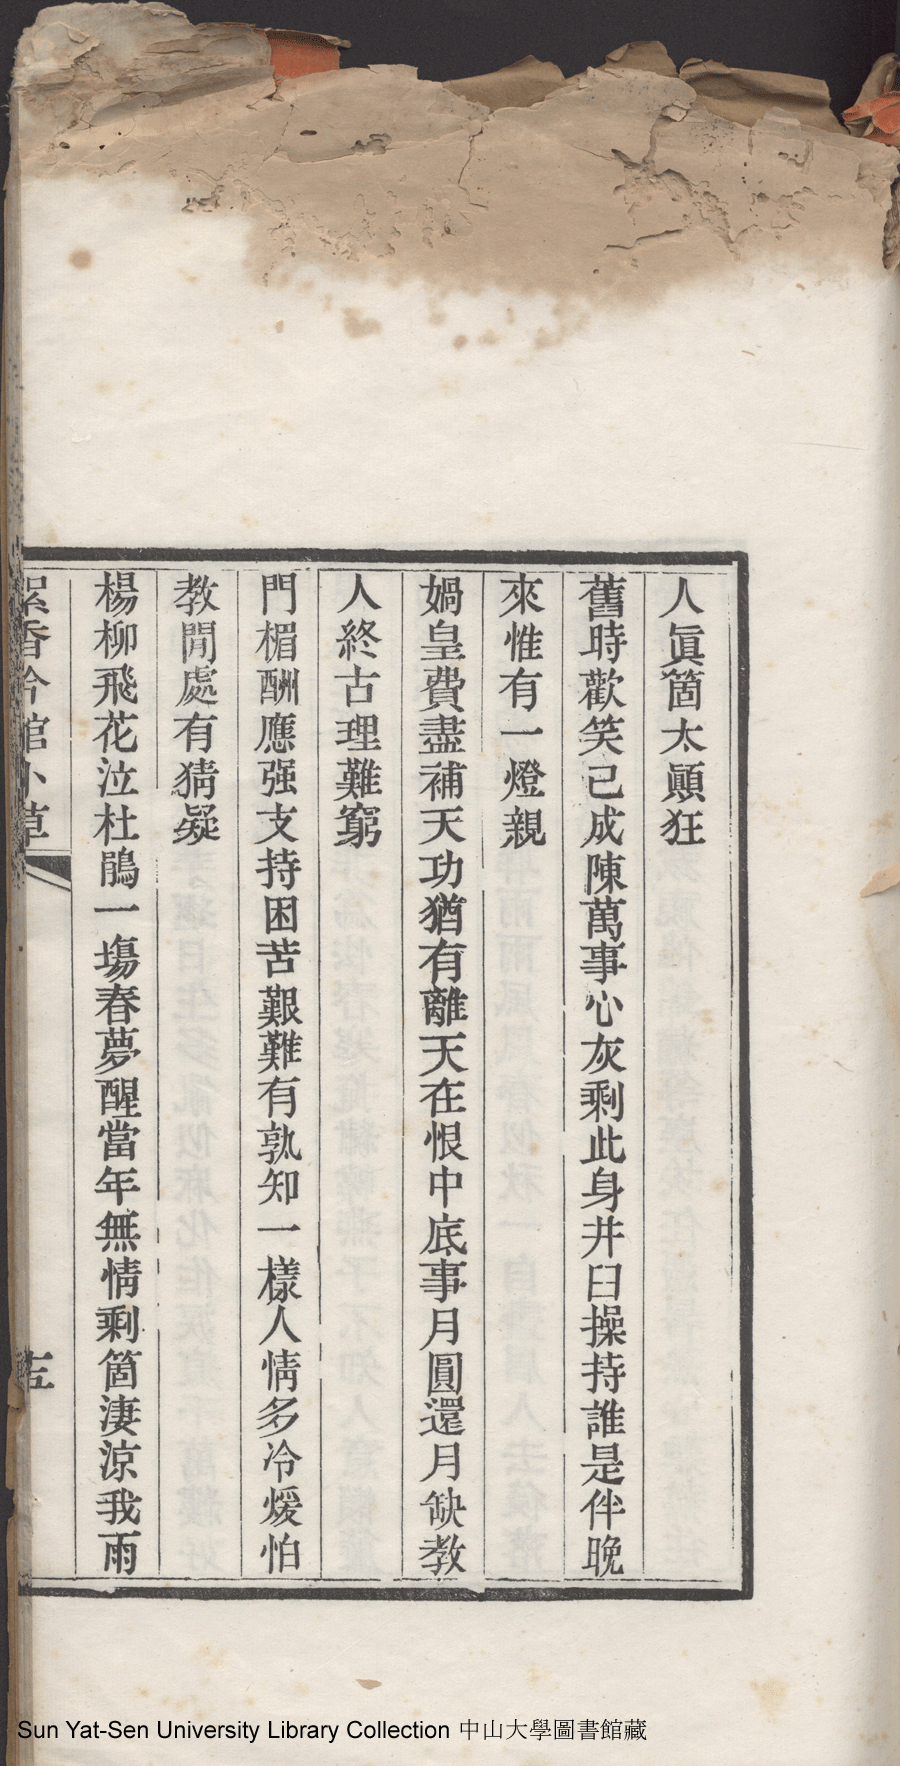 人眞箇太顚狂
舊時歡笑已成陳萬事心灰剩此身井臼操持誰是伴晚
來惟有一燈親
媧皇費盡補天功猶有離天在恨中底事月圓還月缺教
人終古理難窮
門楣酬應强支持困苦艱難有孰知一樣人情多冷煖怕
教閒處有猜疑
楊柳飛花泣杜鵑一塲春夢醒當年無情剩箇淒涼我雨
絮香吟館小草
Sun Yat-Sen University Library Collection 中山大學圖書館藏